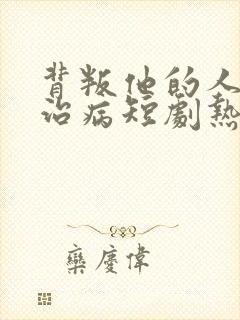 背叛他的人
治病短劇熱
欒慶偉